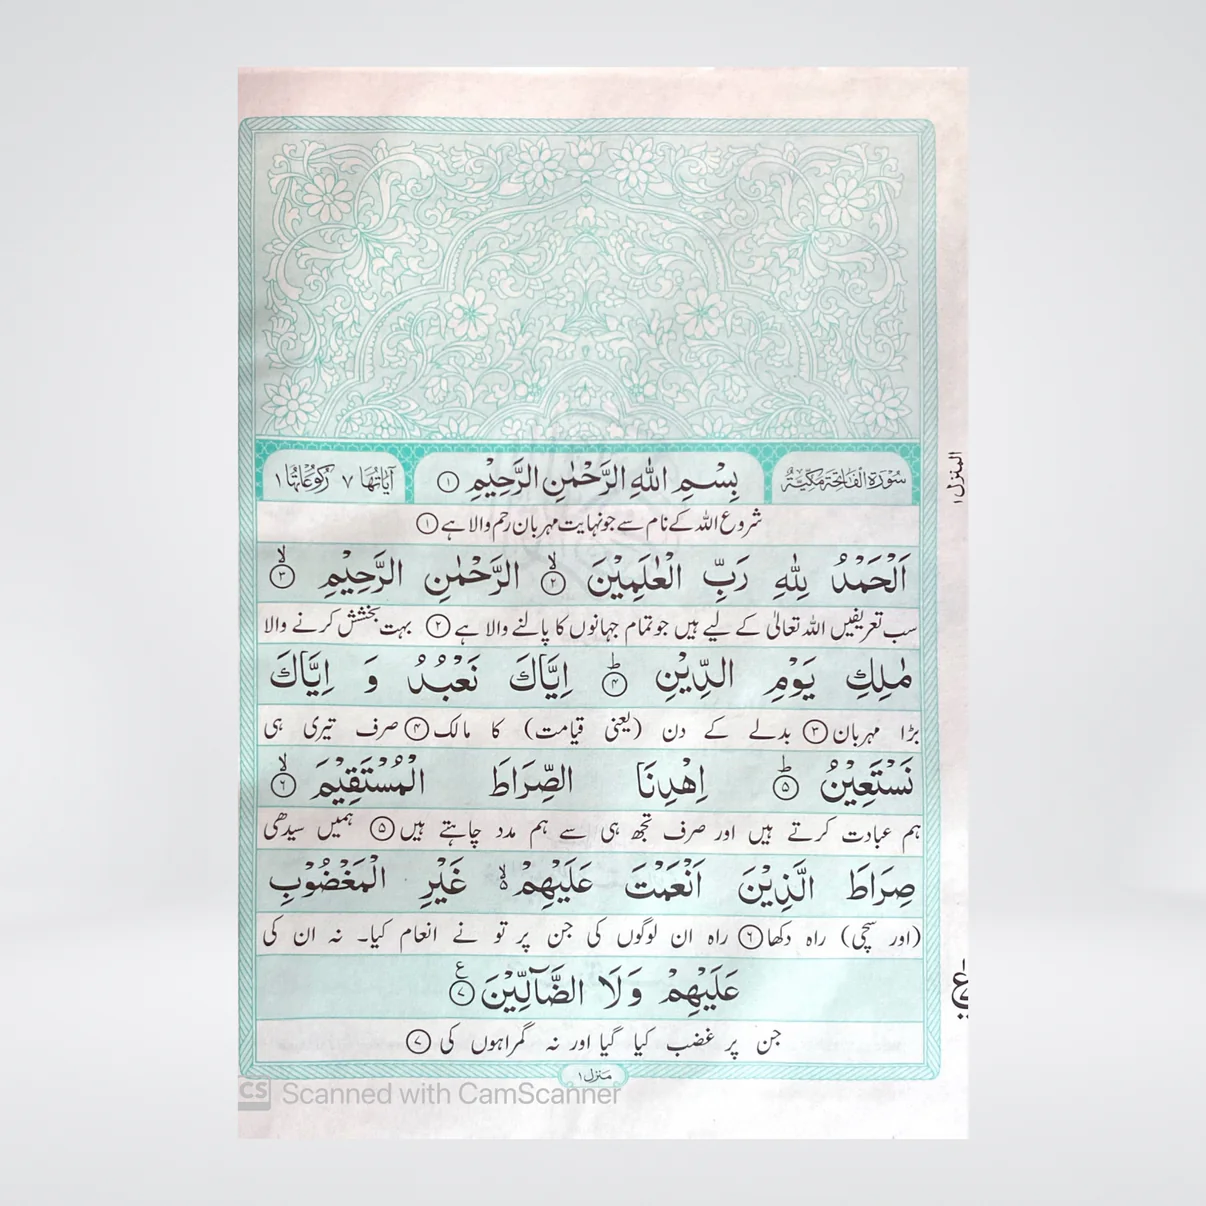 سُوْرَةُ الْفَاتِحَةِ مَكِّيَّةٌ
بِسْمِ اللّٰهِ الرَّحْمٰنِ الرَّحِيْمِ ۝۱
اٰيَاتُهَا ۷ رُكُوْعَاتُهَا ۱
شروع اللہ کے نام سے جو نہایت مہربان رحم والا ہے ۝۱
اَلْحَمْدُ لِلّٰهِ رَبِّ الْعٰلَمِيْنَ ۝۲ۙ الرَّحْمٰنِ الرَّحِيْمِ ۝۳ۙ
سب تعریفیں اللہ تعالیٰ کے لیے ہیں جو تمام جہانوں کا پالنے والا ہے ۝۲ بہت بخشش کرنے والا
مٰلِكِ يَوْمِ الدِّيْنِ ۝۴ؕ اِيَّاكَ نَعْبُدُ وَ اِيَّاكَ
بڑا مہربان ۝۳ بدلے کے دن (یعنی قیامت) کا مالک ۝۴ صرف تیری ہی
نَسْتَعِيْنُ ۝۵ؕ اِهْدِنَا الصِّرَاطَ الْمُسْتَقِيْمَ ۝۶ۙ
ہم عبادت کرتے ہیں اور صرف تجھ ہی سے ہم مدد چاہتے ہیں ۝۵ ہمیں سیدھی
صِرَاطَ الَّذِيْنَ اَنْعَمْتَ عَلَيْهِمْ ۙ۵ غَيْرِ الْمَغْضُوْبِ
(اور سچی) راہ دکھا ۝۶ راہ ان لوگوں کی جن پر تو نے انعام کیا۔ نہ ان کی
عَلَيْهِمْ وَلَا الضَّآلِّيْنَ ۝۷ع
جن پر غضب کیا گیا اور نہ گمراہوں کی ۝۷
منزل ۱
المنزل ۱
CS Scanned with CamScanner